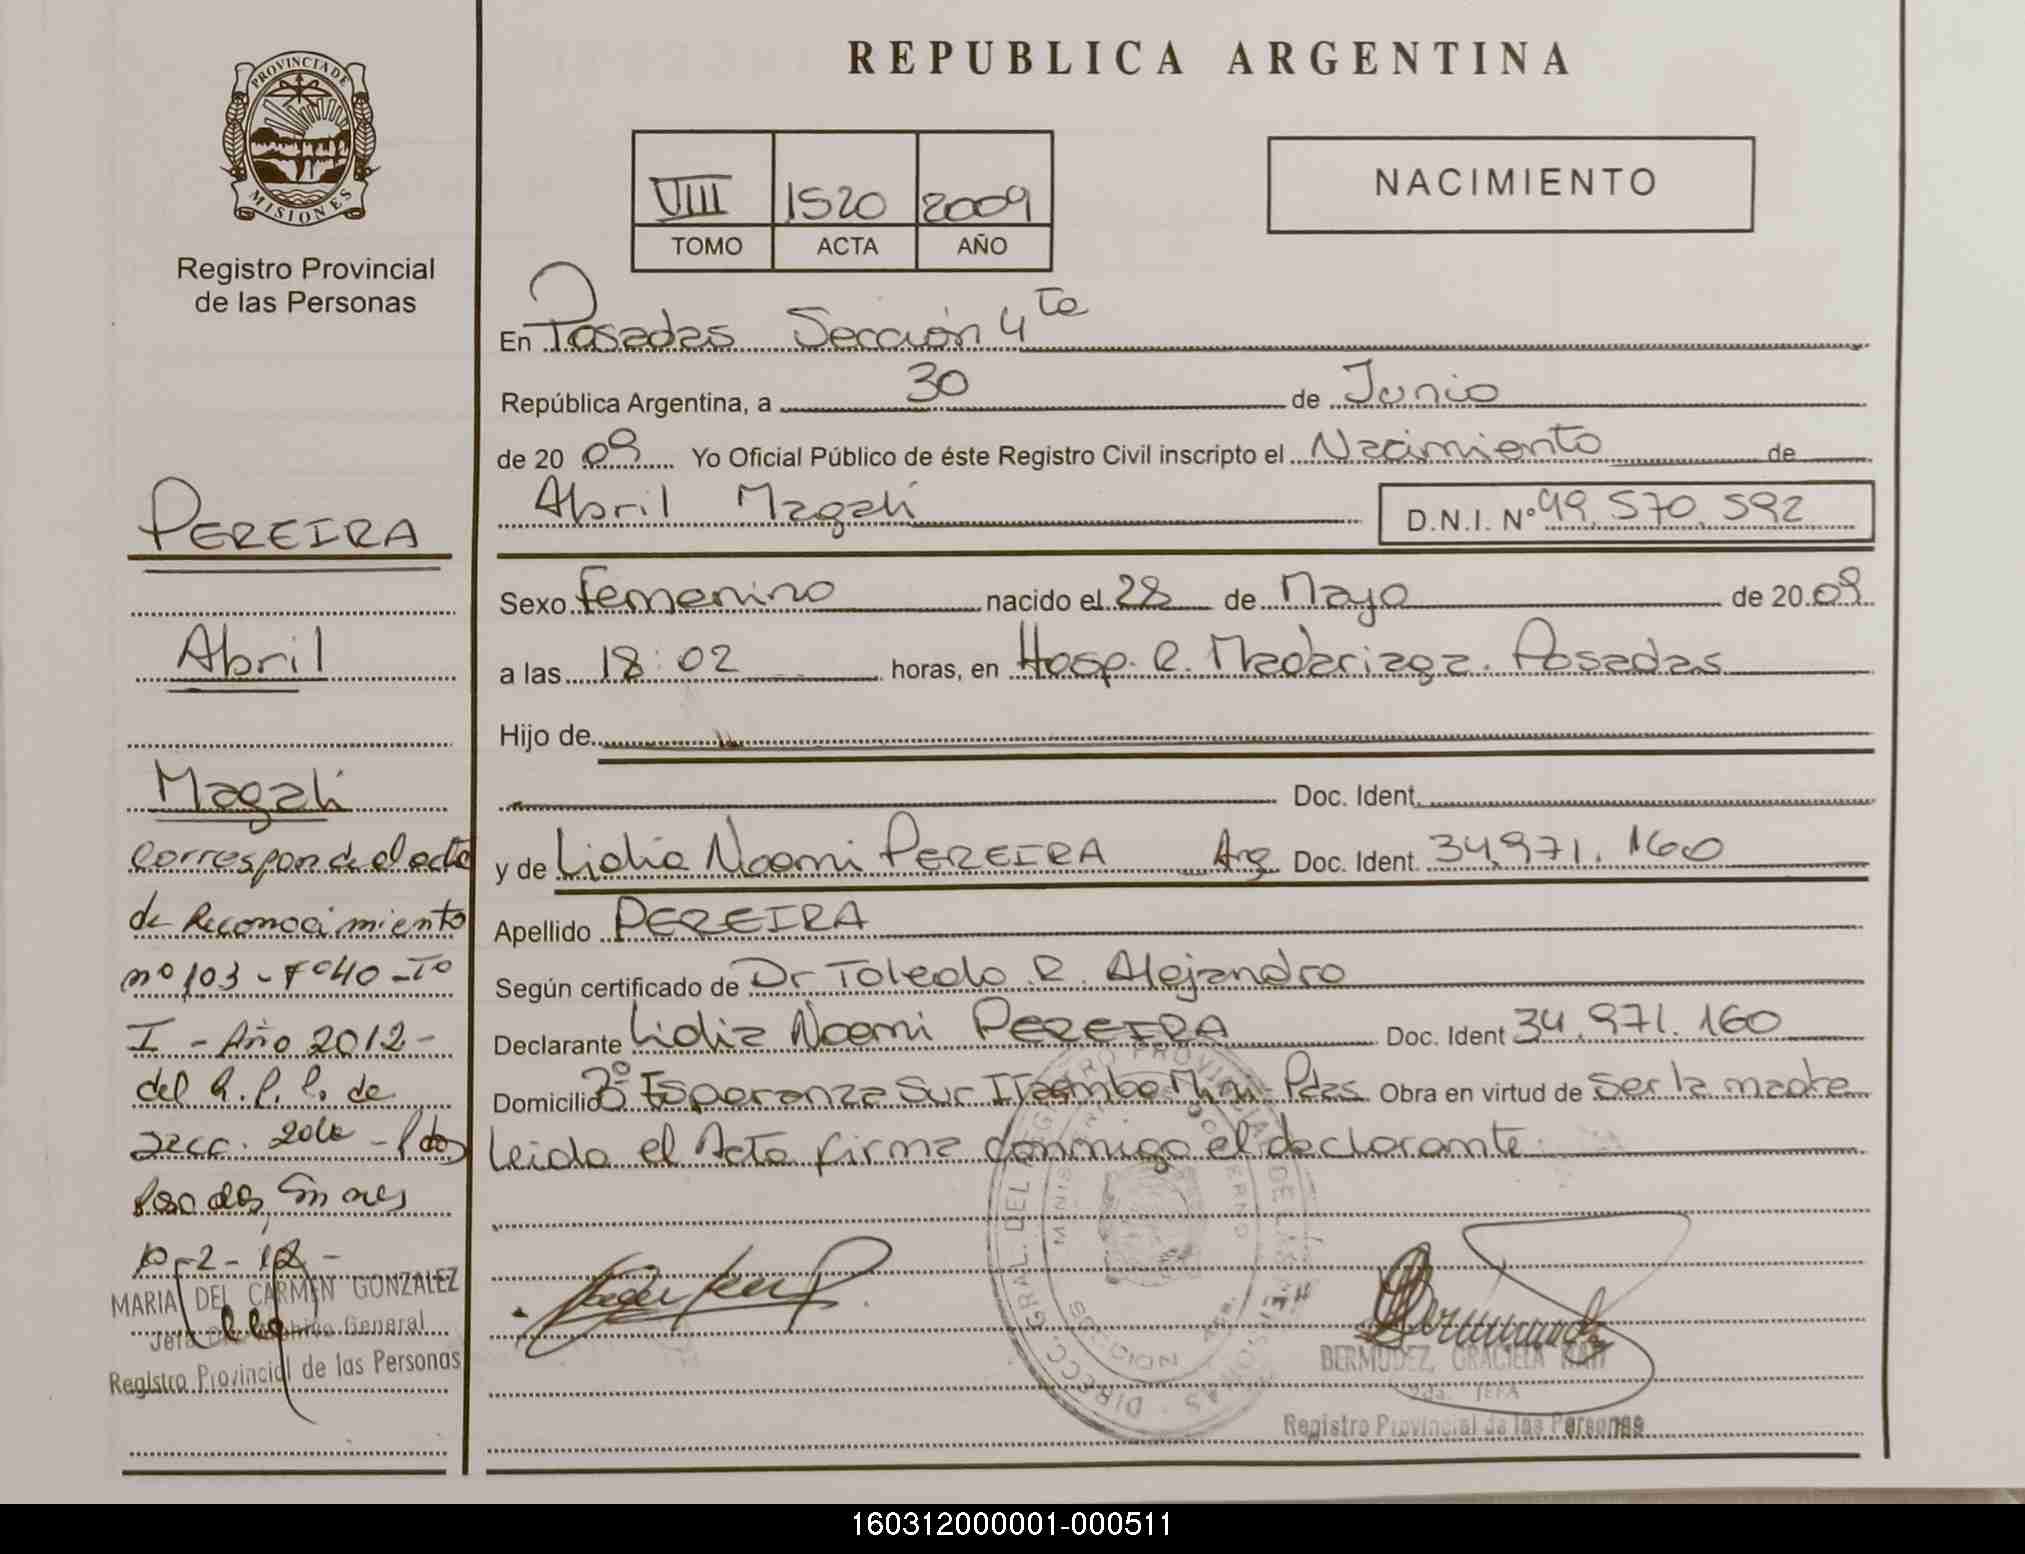 REPUBLICA ARGENTINA
PROVINCIA DE
MISIONES
Registro Provincial
de las Personas
VIII 1520 2009
TOMO ACTA AÑO
NACIMIENTO
En Posadas Sección 4ta
República Argentina, a 30 de Junio
de 20 09 Yo Oficial Público de éste Registro Civil inscripto el Nacimiento de
Abril Magalí D.N.I. Nº 49.570.592
Sexo Femenino nacido el 28 de Mayo de 20 09
a las 18:02 horas, en Hosp. R. Madariaga. Posadas
Hijo de
Doc. Ident.
y de Lidia Noemi PEREIRA Arg Doc. Ident. 34.971.160
Apellido PEREIRA
Según certificado de Dr Toledo R. Alejandro
Declarante Lidia Noemi PEREIRA Doc. Ident 34.971.160
Domicilio Bº Esperanza Sur Itaembe Mini-Pdas. Obra en virtud de Ser la madre
leida el Acta firma conmigo el declarante.
PEREIRA
Abril
Magalí
Corresponde al acta
de Reconocimiento
nº 103 - Fº 40 - Tº
I - Año 2012 -
del R.P.P. de
secc. - Pdas
Posadas, Misiones
10-2-12-
MARIA DEL CARMEN GONZALEZ
Jefa Archivo General
Registro Provincial de las Personas
BERMUDEZ, GRACIELA
2da. JEFA
Registro Provincial de las Personas
160312000001-000511